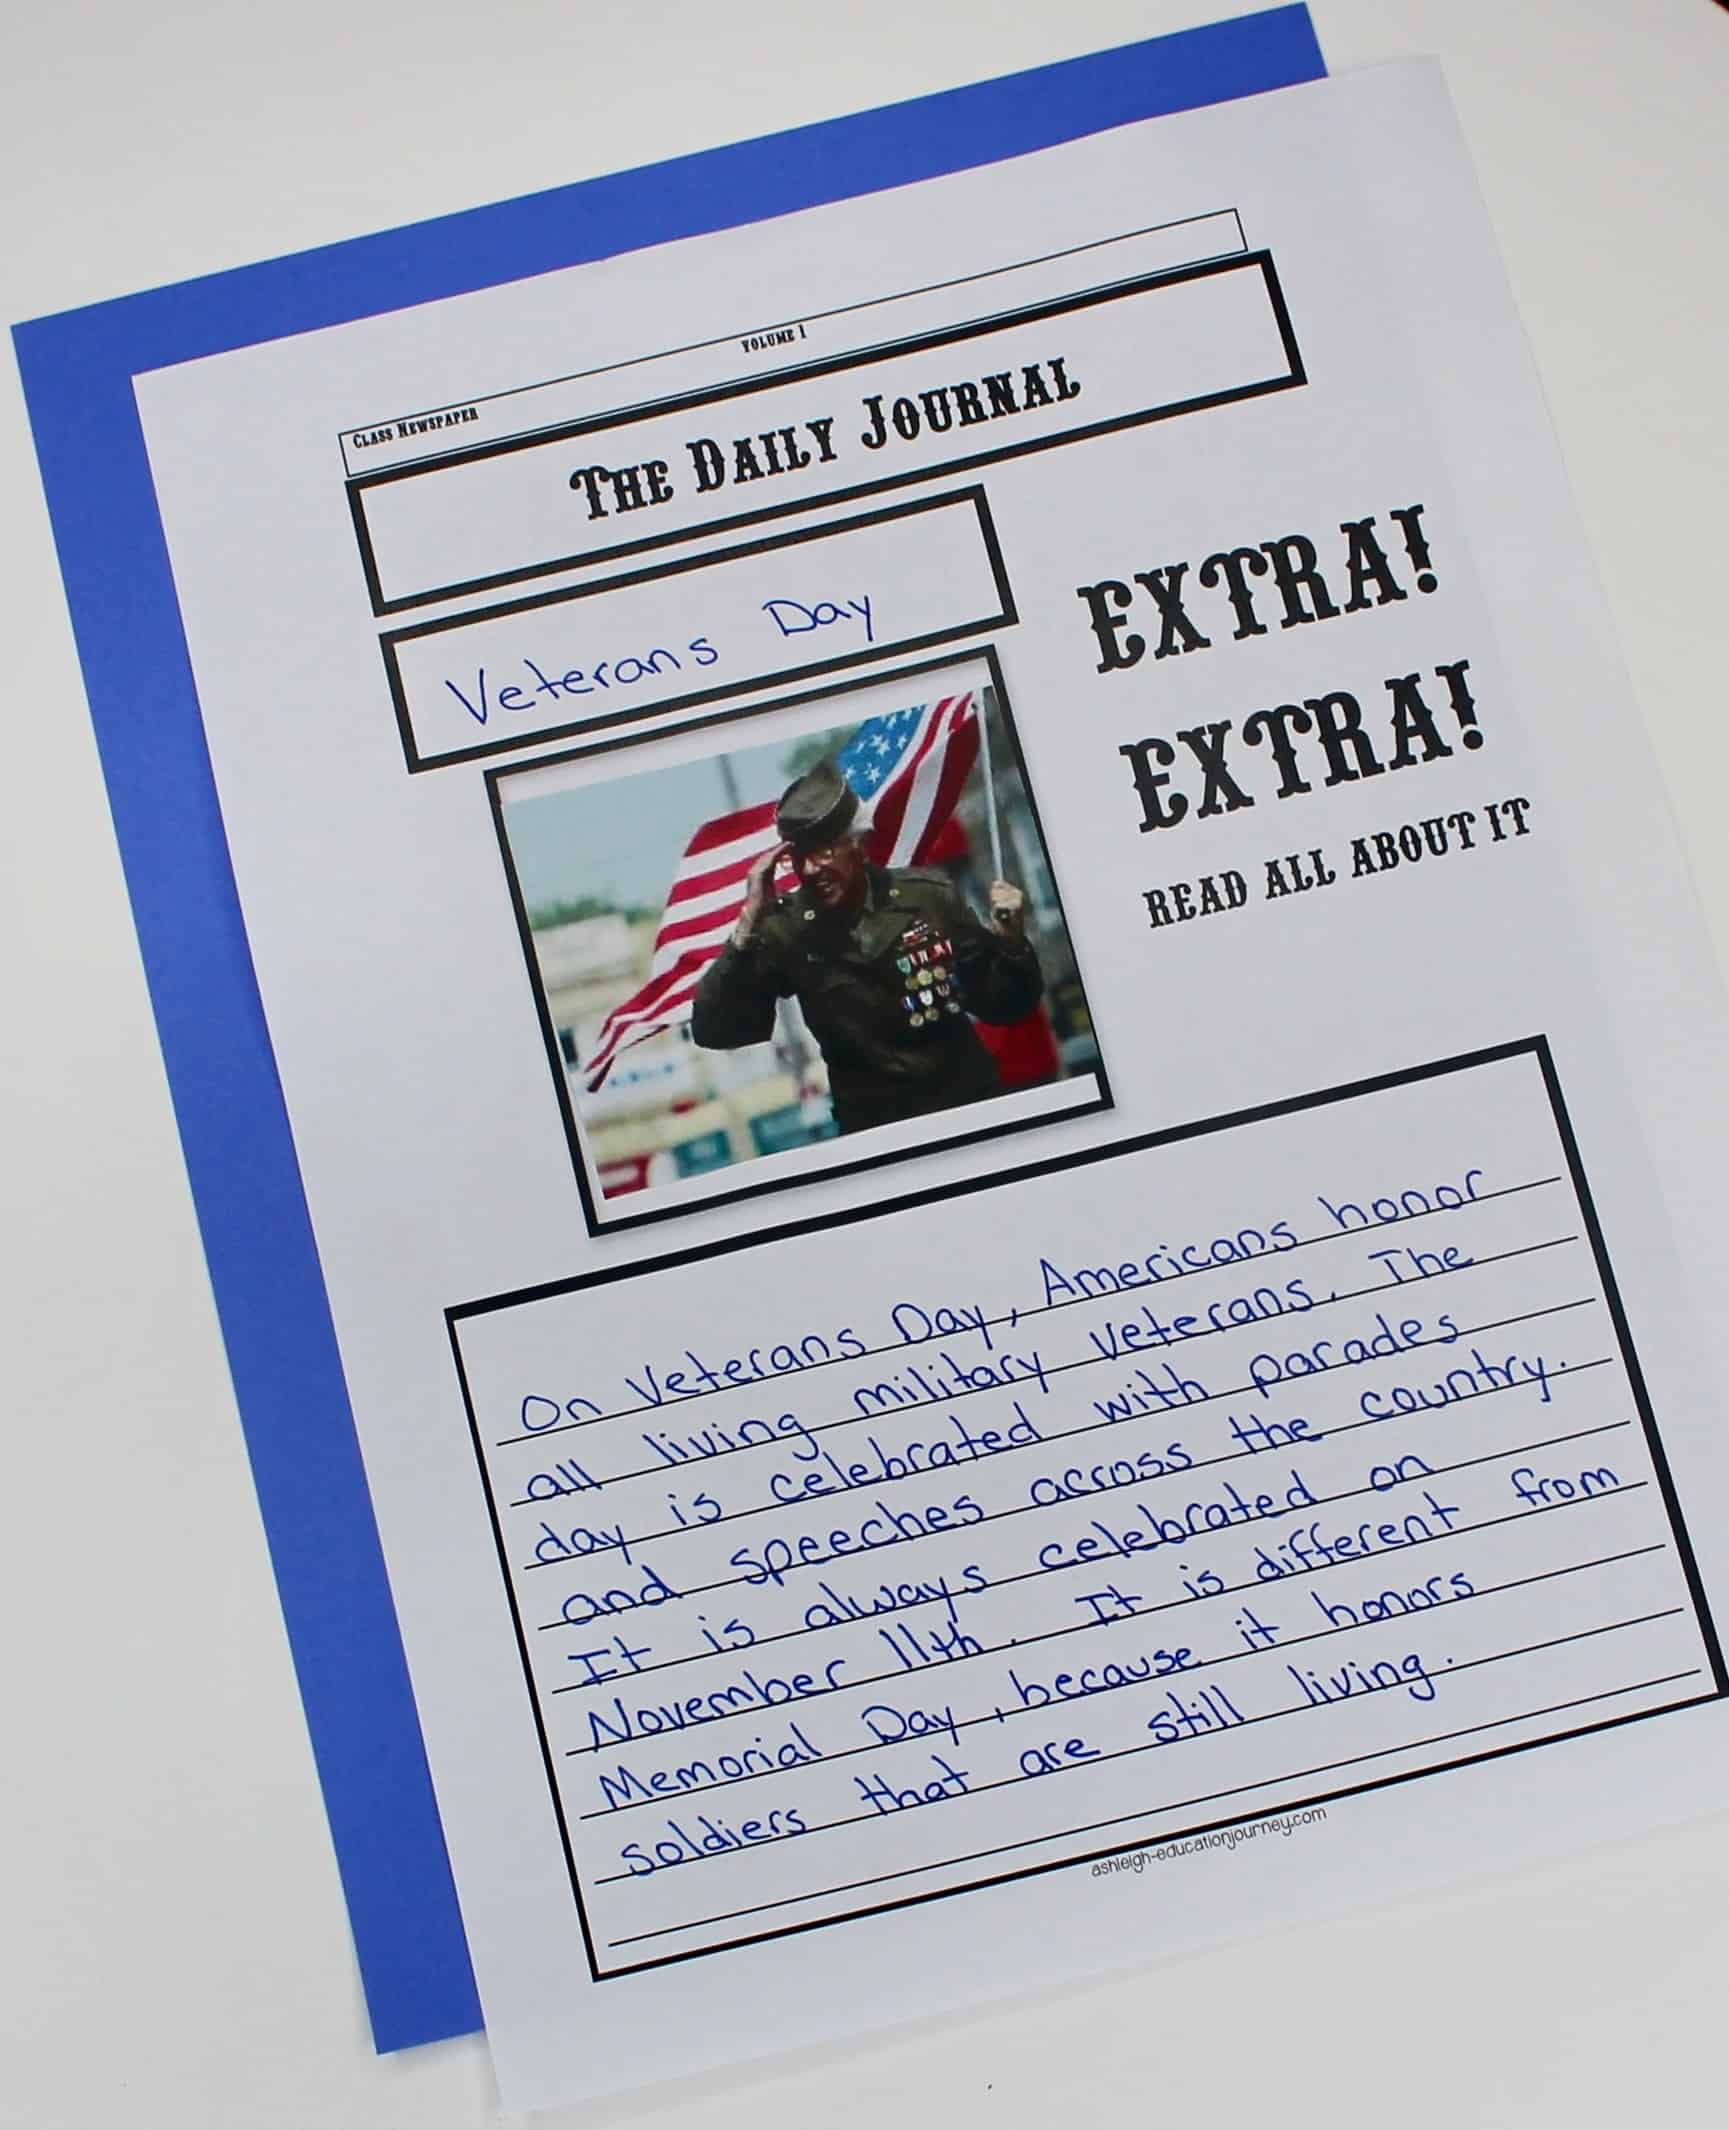 CLASS NEWSPAPER VOLUME 1
THE DAILY JOURNAL
Veterans Day
EXTRA!
EXTRA!
READ ALL ABOUT IT
On Veterans Day, Americans honor
all living military veterans. The
day is celebrated with parades
and speeches across the country.
It is always celebrated on
November 11th. It is different from
Memorial Day, because it honors
soldiers that are still living.
ashleigh-educationjourney.com